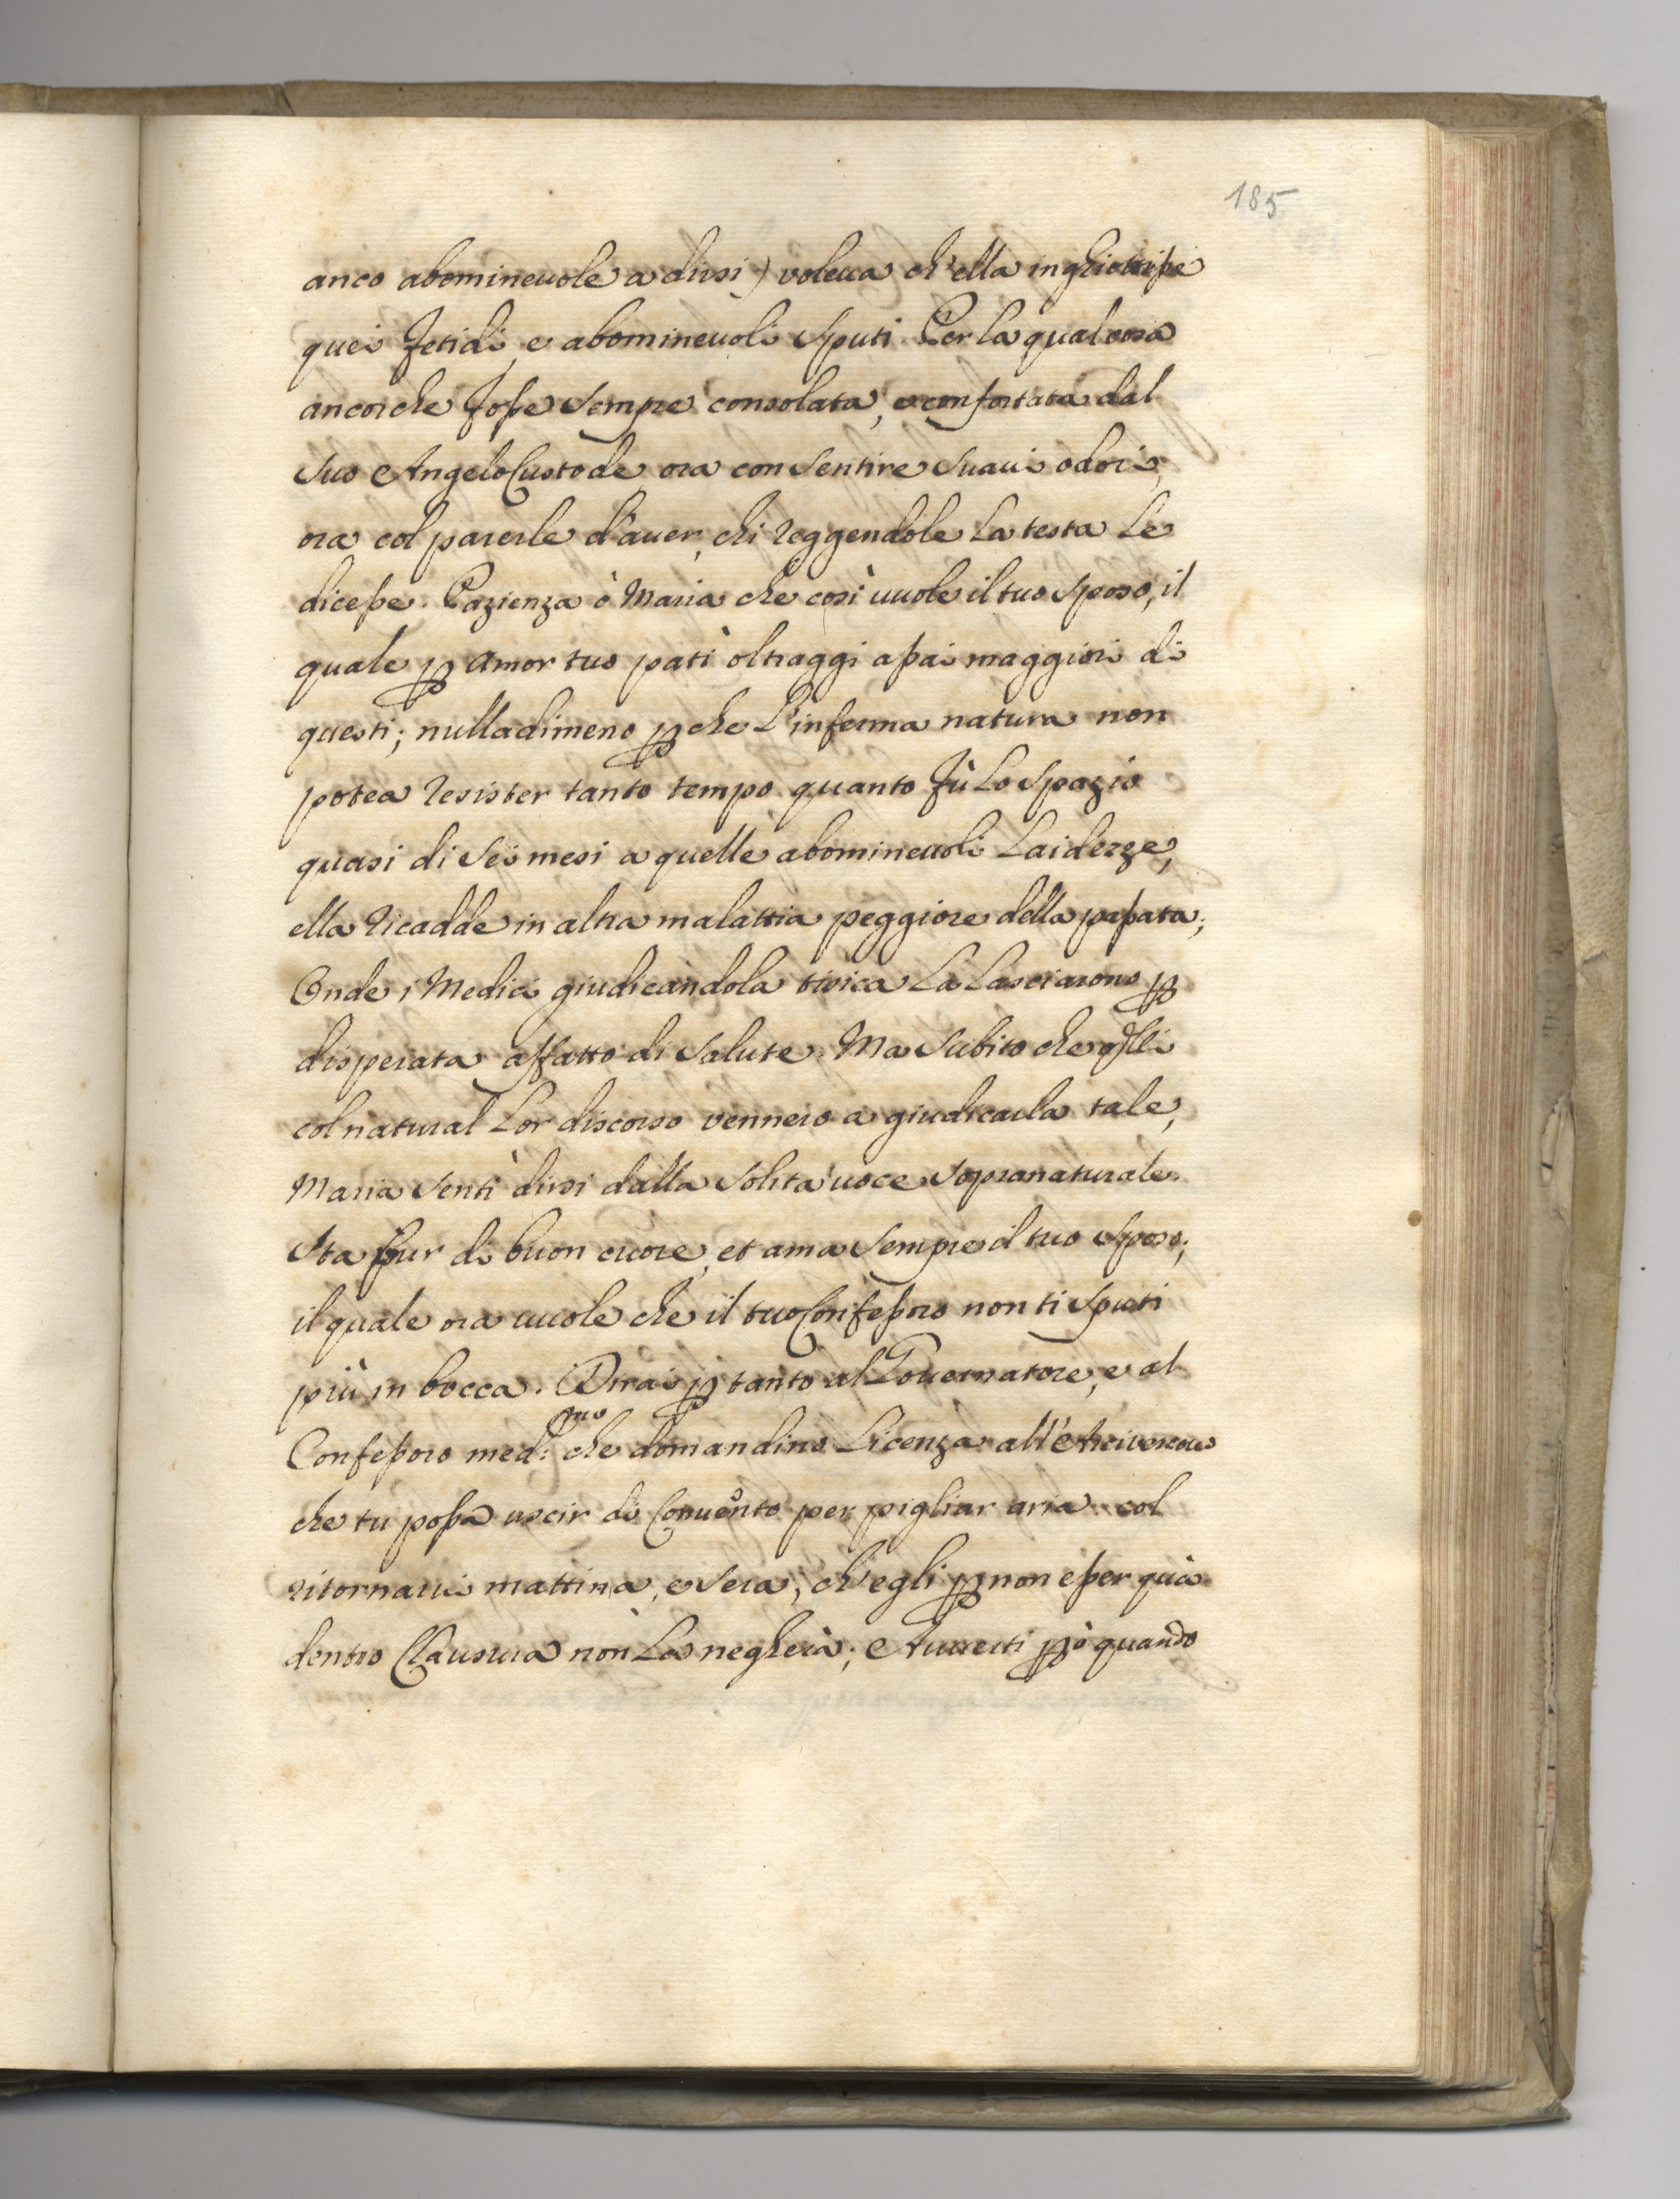 185
anco abomineuole a dirsi) voleua ch'ella inghiottisse
quei fetidi, e abomineuoli sputi. Per la qual cosa
ancorche fosse sempre consolata, e confortata dal
suo Angelo Custode ora con sentire suaui odori,
ora col parerle d'auer, chi reggendole la testa le
dicesse. Pazienza ò Maria che così uuole il tuo sposo, il
quale ꝑ amor tuo patì oltraggi assai maggiori di
questi; nulladimeno ꝑche l'inferma natura non
potea resister tanto tempo quanto fù lo spazio
quasi di sei mesi a quelle abomineuoli laidezze,
ella ricadde in altra malattia peggiore della passata;
Onde i Medici giudicandola tisica la lasciarono ꝑ
disperata affatto di salute. Ma subito che q̃lli
col natural lor discorso vennero a giudicarla tale,
Maria sentì dirsi dalla solita uoce sopranaturale.
Sta pur di buon cuore, et ama sempre il tuo sposo;
il quale ora uuole che il tuo Confessoro non ti sputi
più in bocca. Dirai ꝑ tanto al Gouernatore, e al
Confessoro med:mo che domandino licenza all'Arciuescouo
che tu possa uscir di Conuento per pigliar aria col
ritornarui mattina, e sera, ch'egli ꝑ non esser quià
dentro Clausura non la negherà; Auuerti ꝑò quando